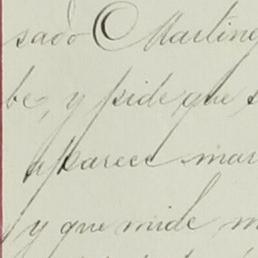 sado Martin
be, y pide que
aparece mar
y que mide m